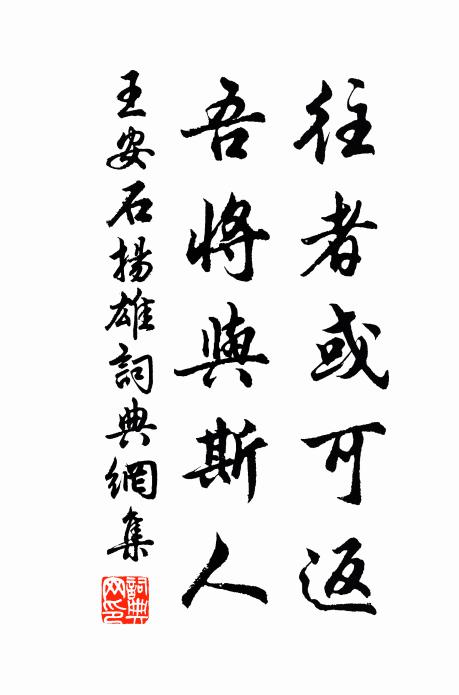 往者或可返
吾將與斯人
王安石揚雄詞典網集
詞典網印